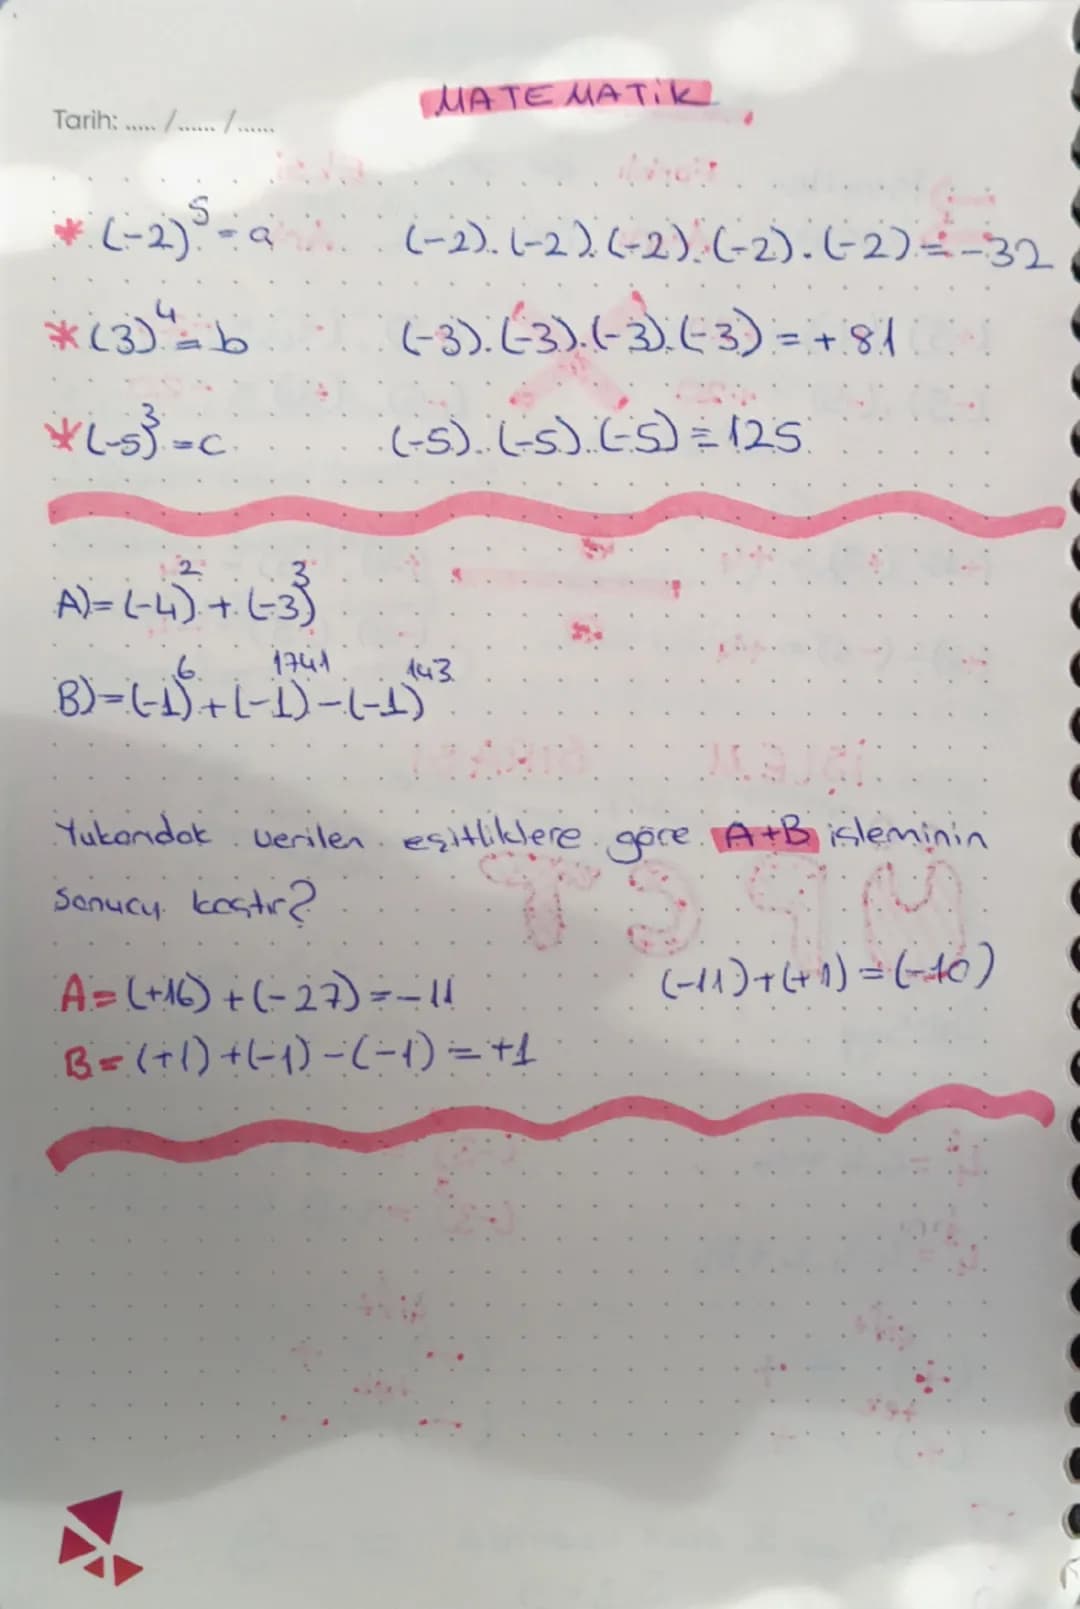 MATEMATiK
Tarih: ..... /...... /......
* (-2)⁵ = a (-2).(-2).(-2).(-2).(-2) = -32
* (3)⁴ = b (-3).(-3).(-3).(-3) = +81
* (-5)³ = c (-5).(-5).(-5) = 125
A) = (-4)² + (-3)³
B) = (-1)⁶ + (-1)¹⁷⁴¹ - (-1)¹⁴³
Yukarıdak verilen eşitliklere göre A+B işleminin
Sonucu kaçtır?
A = (+16) + (-27) = -11 (-11) + (+1) = (-10)
B = (+1) + (-1) - (-1) = +1